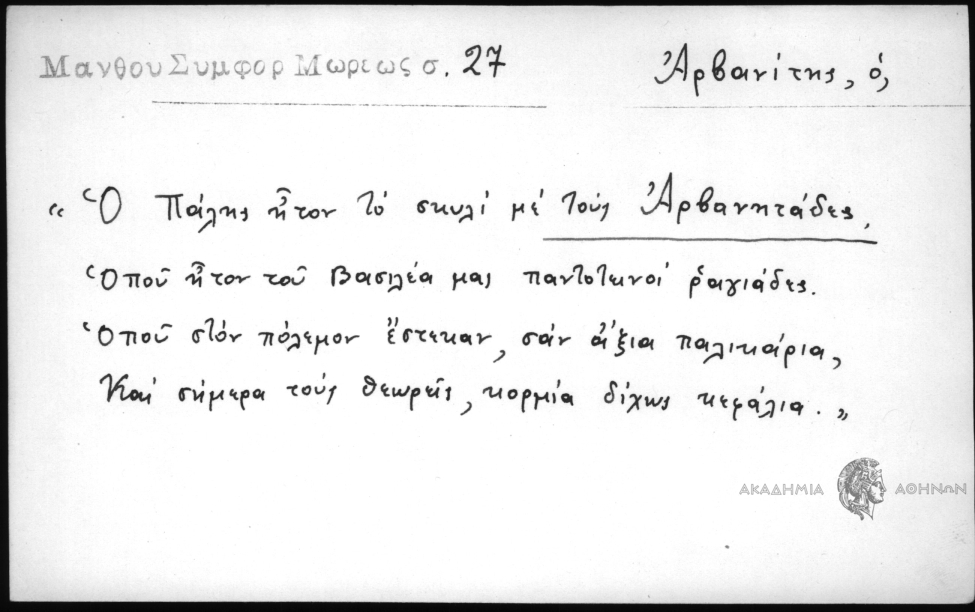 Μανθου Συμφορ Μωρεως σ. 27
Ἀρβανίτης, ὁ,
« Ὁ Πάλης ἦτον τὸ σκυλὶ μὲ τοὺς Ἀρβανητάδες,
Ὁποῦ ἦτον τοῦ Βασιλέα μας παντοτεινοὶ ῥαγιάδες.
Ὁποῦ στὸν πόλεμον ἔστεκαν, σὰν ἄξια παλικάρια,
Καὶ σήμερα τοὺς θεωρεῖς, κορμία δίχως κεφάλια. »
ΑΚΑΔΗΜΙΑ ΑΘΗΝΩΝ